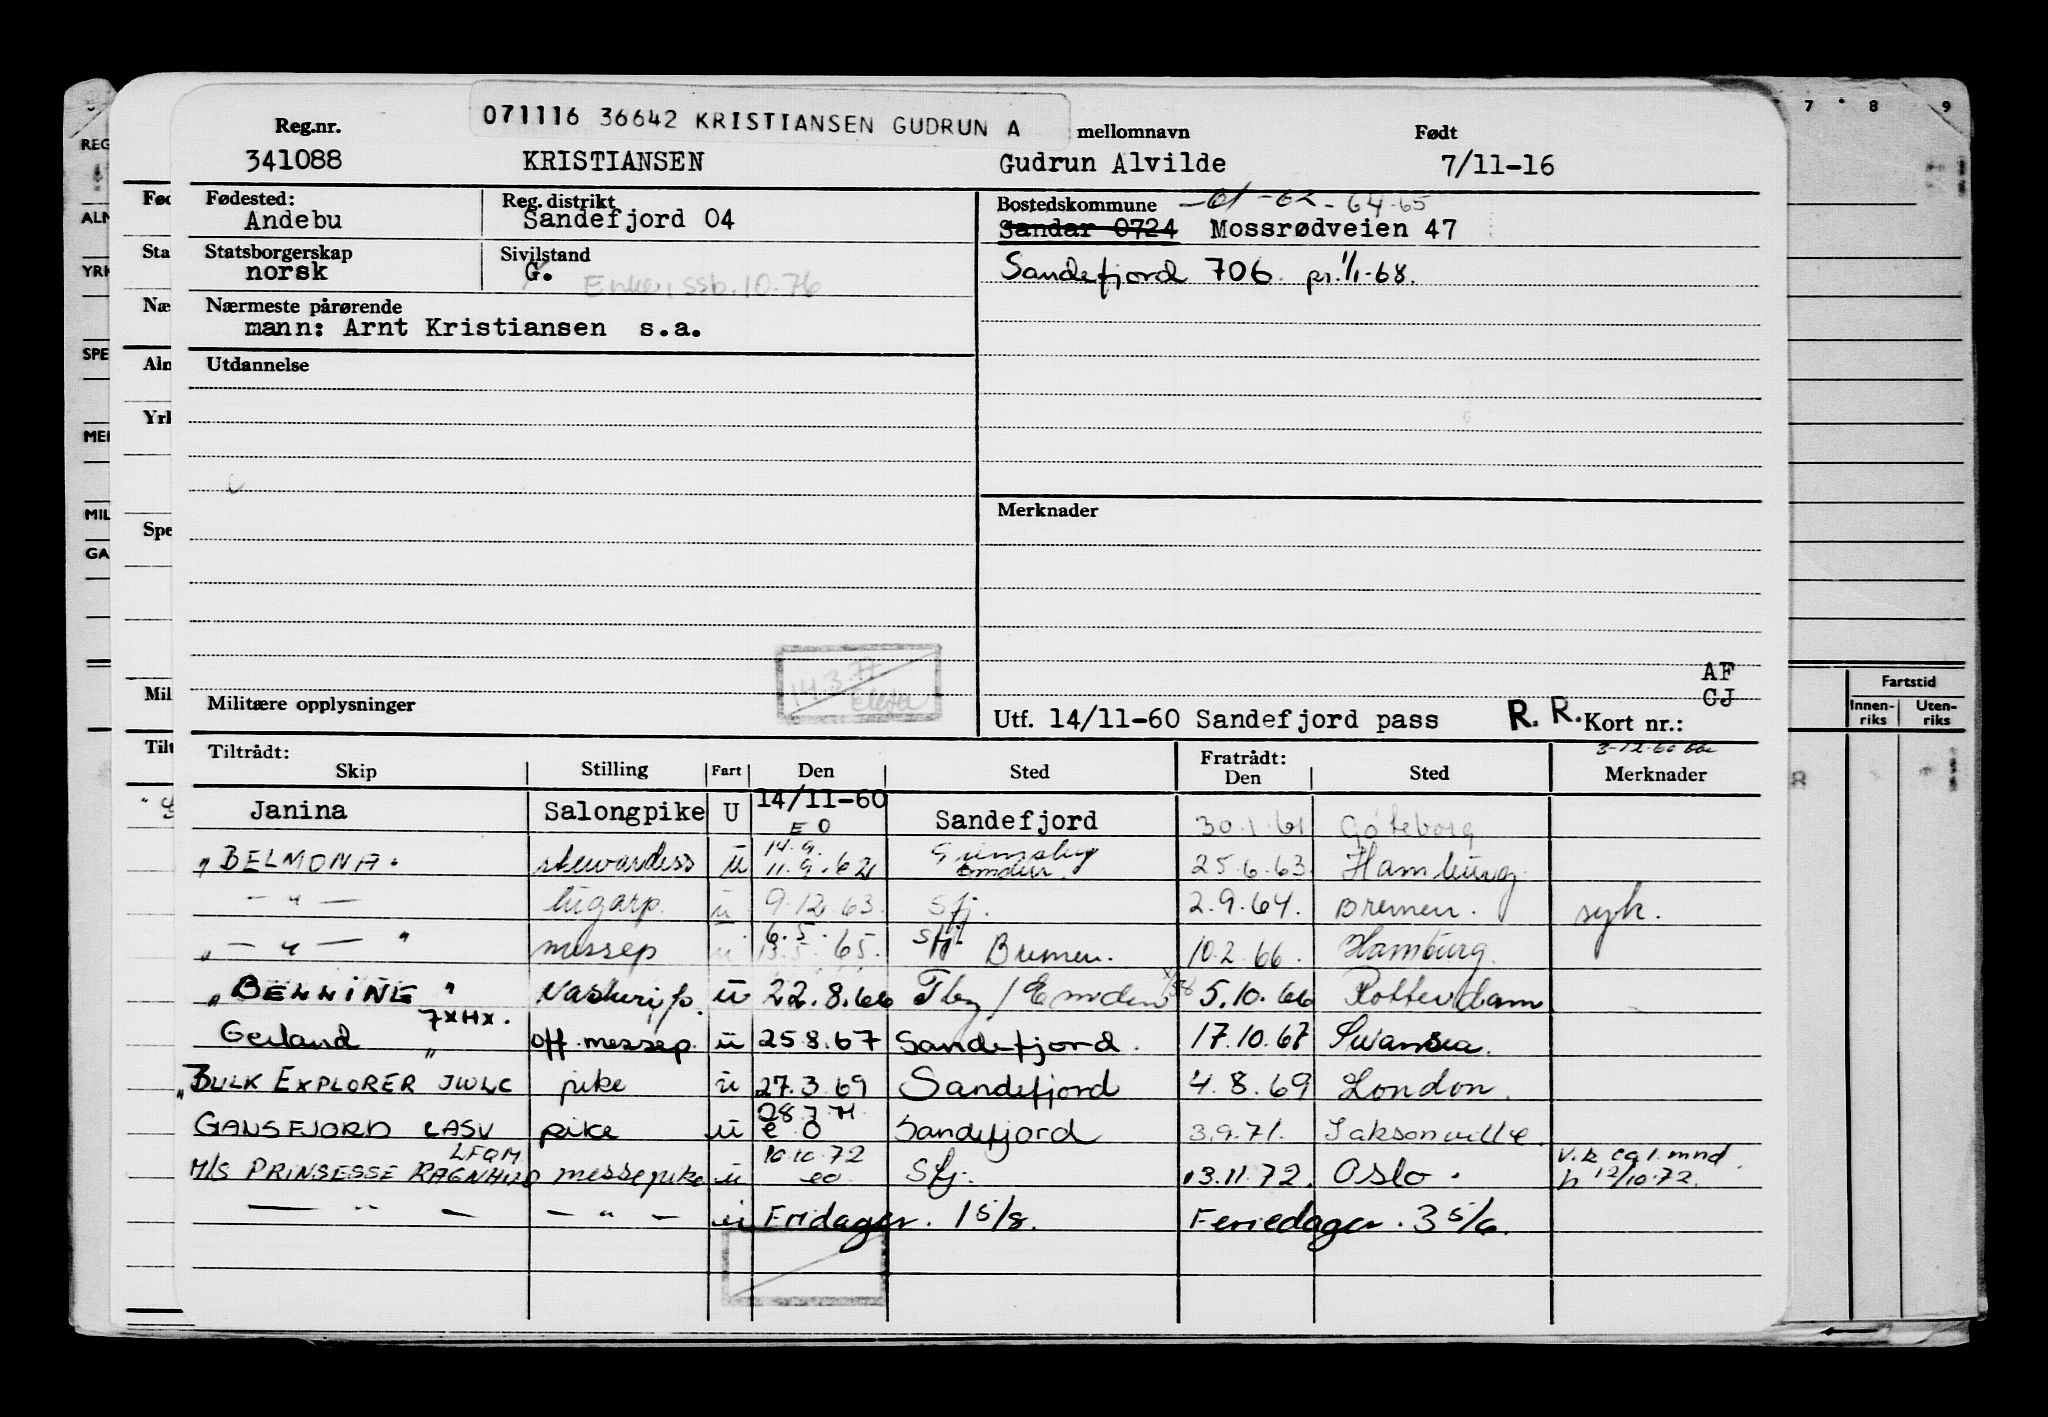 071116 36642 KRISTIANSEN GUDRUN A
Reg.nr. mellomnavn Født
341088 KRISTIANSEN Gudrun Alvilde 7/11-16
Fødested: Reg. distrikt Bostedskommune -61-62-64-65
Andebu Sandefjord 04 Sandar 0724 Mossrødveien 47
Statsborgerskap Sivilstand
norsk G. Enke, ssb. 10.76 Sandefjord 706. pr. 1/1-68.
Nærmeste pårørende
mann: Arnt Kristiansen s.a.
Utdannelse
Merknader
AF
GJ
14.3.77
Militære opplysninger
Utf. 14/11-60 Sandefjord pass R. R. Kort nr.:
Tiltrådt: Fratrådt:
Skip Stilling Fart Den Sted Den Sted Merknader
Janina Salongpike U 14/11-60 EO Sandefjord 30.1.61 Göteborg
"BELMONA" stewardess u 14.9. 11.9.62 Grimsby Emden. 25.6.63 Hamburg
— " — lugarp. u 9.12.63. Sfj. 2.9.64. Bremen. syk.
" — " — " messep u 6.5. 13.5.65. Sfj Bremen. 10.2.66. Hamburg.
"BELLINE" u 22.8.66 Tbg / Emden 5.10.66 Rotterdam
7XHX.
Gerland " off.messep. u 25.8.67 Sandefjord. 17.10.67 Swansea.
"BULK EXPLORER JWLC pike u 27.3.69 Sandefjord 4.8.69 London.
GANSFJORD LASV pike u 28.7.71 e O Sandefjord 3.9.71. Jaksonville.
LFQM 10.10.72 v.k ca 1.mnd.
M/S PRINSESSE RAGNHILD messepike u eo Sfj. 13.11.72. Oslo. h 12/10.72.
— " — — " — u Fridager. 1 5/8. Feriedager. 3 5/6.
7 8 9
REG
ALN
YRK
SPE
MEI
MIL
GA
Fød
Sta
Næ
Aln
Yrk
Spe
Mil
Tilt
Fartstid
Innen-riks Uten-riks